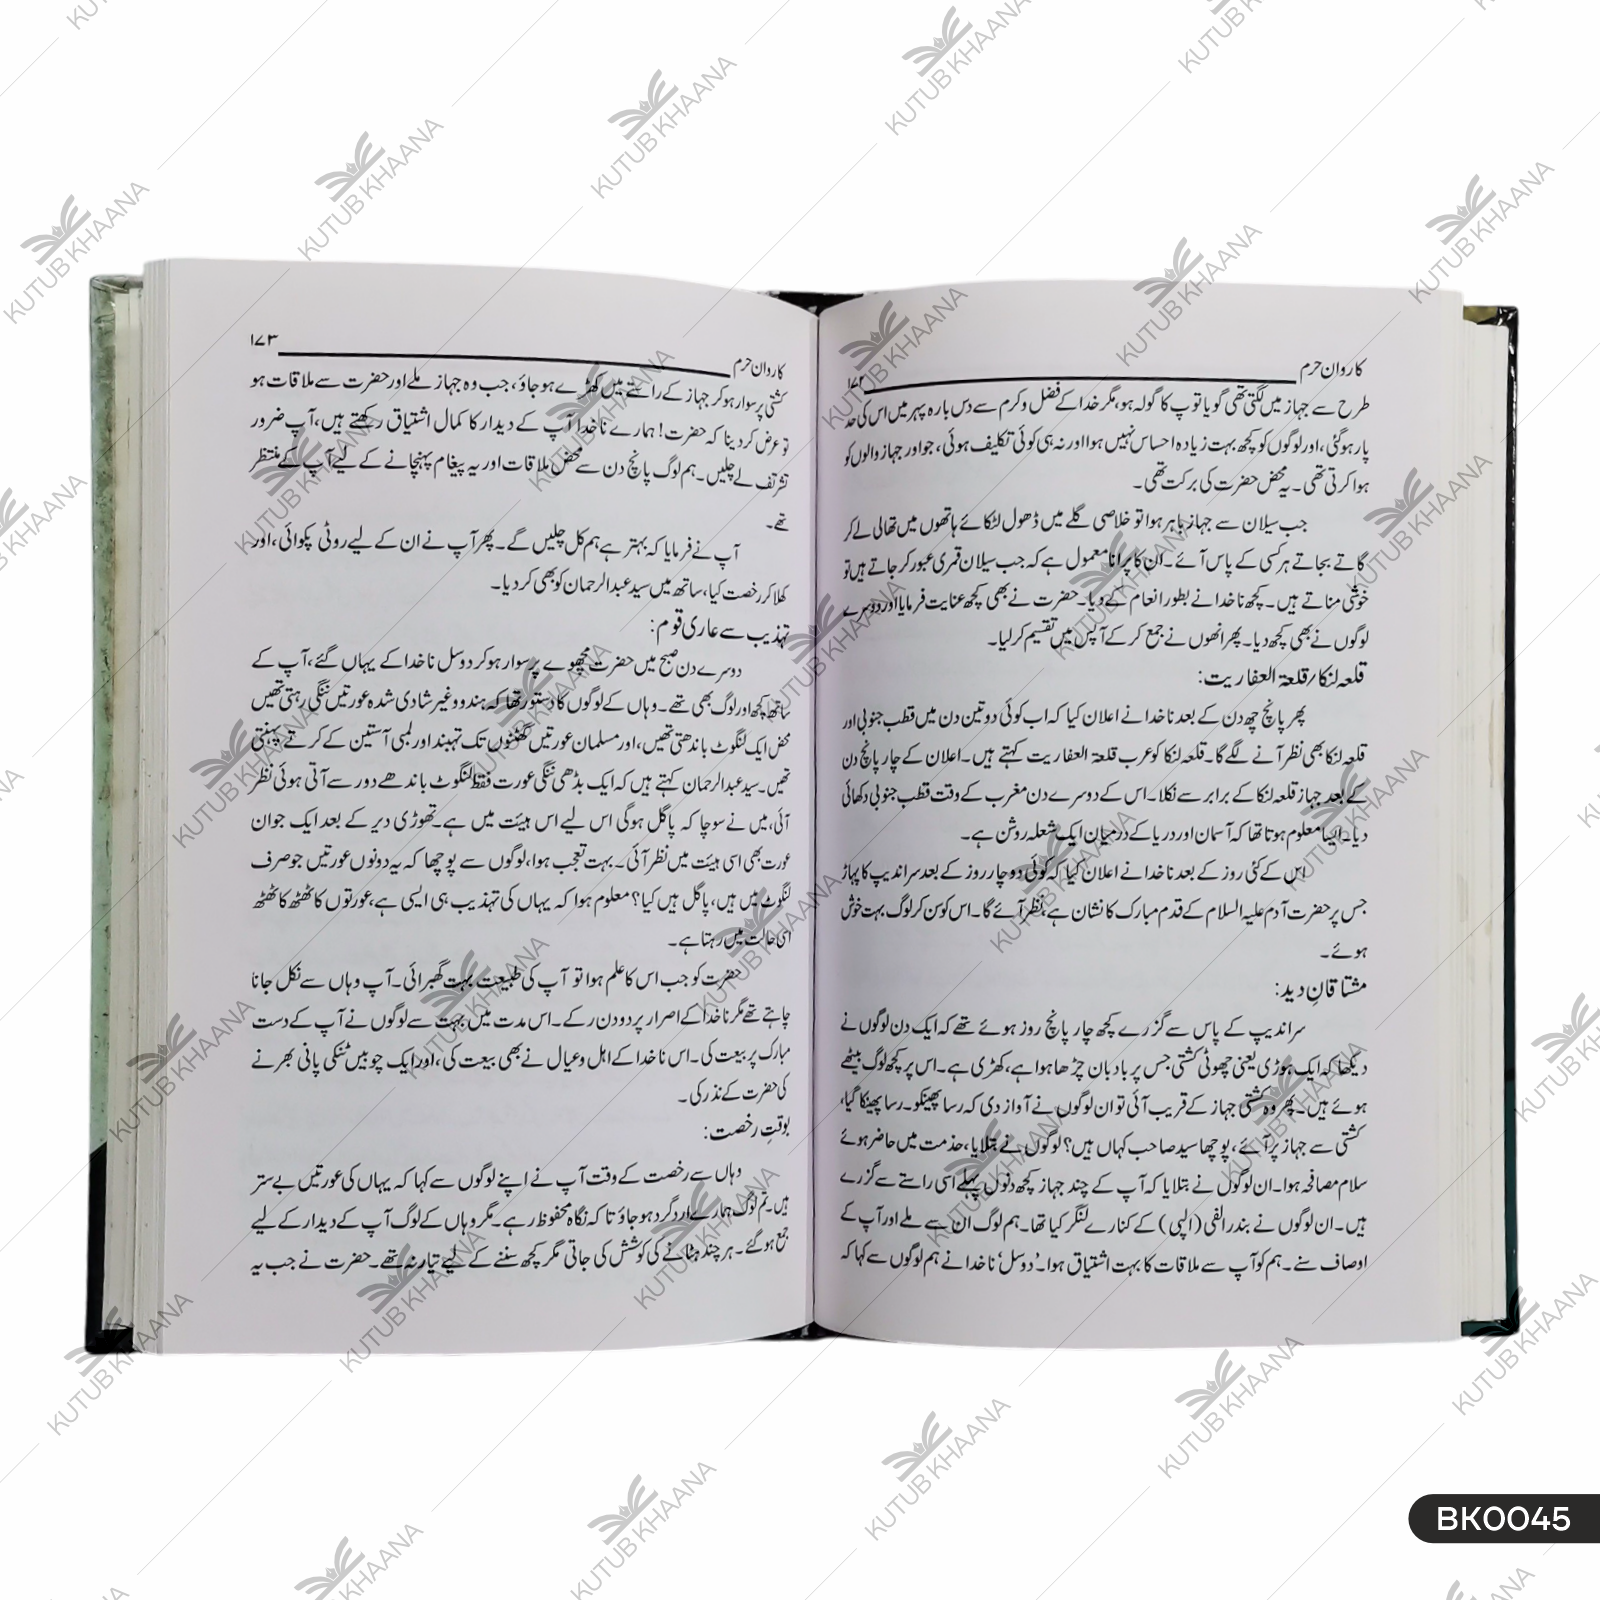 کاروان حرم
۱۷۲
طرح سے جہاز میں لگتی تھی گویا توپ کا گولہ ہو، مگر خدا کے فضل و کرم سے دس بارہ پہر میں اس کی حد
پار ہوگئی، اور لوگوں کو کچھ بہت زیادہ احساس نہیں ہوا اور نہ ہی کوئی تکلیف ہوئی، جو اور جہاز والوں کو
ہوا کرتی تھی۔ یہ محض حضرت کی برکت تھی۔
جب سیلان سے جہاز باہر ہوا تو خلاصی گلے میں ڈھول لٹکائے ہاتھوں میں تھالی لے کر
گاتے بجاتے ہر کسی کے پاس آئے۔ ان کا پرانا معمول ہے کہ جب سیلان قمری عبور کر جاتے ہیں تو
خوشی مناتے ہیں۔ کچھ ناخدا نے بطور انعام کے دیا۔ حضرت نے بھی کچھ عنایت فرمایا اور دوسرے
لوگوں نے بھی کچھ دیا۔ پھر انھوں نے جمع کر کے آپس میں تقسیم کر لیا۔
قلعہ لنکا/قلعۃ العفاریت:
پھر پانچ چھ دن کے بعد ناخدا نے اعلان کیا کہ اب کوئی دو تین دن میں قطب جنوبی اور
قلعہ لنکا بھی نظر آنے لگے گا۔ قلعہ لنکا کو عرب قلعۃ العفاریت کہتے ہیں۔ اعلان کے چار پانچ دن
کے بعد جہاز قلعہ لنکا کے برابر سے نکلا۔ اس کے دوسرے دن مغرب کے وقت قطب جنوبی دکھائی
دیا۔ ایسا معلوم ہوتا تھا کہ آسمان اور دریا کے درمیان ایک شعلہ روشن ہے۔
اس کے کئی روز کے بعد ناخدا نے اعلان کیا کہ کوئی دو چار روز کے بعد سراندیپ کا پہاڑ
جس پر حضرت آدم علیہ السلام کے قدم مبارک کا نشان ہے، نظر آئے گا۔ اس کو سن کر لوگ بہت خوش
ہوئے۔
مشتاقانِ دید:
سراندیپ کے پاس سے گزرے کچھ چار پانچ روز ہوئے تھے کہ ایک دن لوگوں نے
دیکھا کہ ایک ہوڑی یعنی چھوٹی کشتی جس پر بادبان چڑھا ہوا ہے، کھڑی ہے۔ اس پر کچھ لوگ بیٹھے
ہوئے ہیں۔ پھر وہ کشتی جہاز کے قریب آئی تو ان لوگوں نے آواز دی کہ رسا پھینکو۔ رسا پھینکا گیا،
کشتی سے جہاز پر آئے، پوچھا سید صاحب کہاں ہیں؟ لوگوں نے بتلایا، خدمت میں حاضر ہوئے
سلام مصافحہ ہوا۔ ان لوگوں نے بتلایا کہ آپ کے چند جہاز کچھ دنوں پہلے اسی راستے سے گزرے
ہیں۔ ان لوگوں نے بندر الفی (الپی) کے کنارے لنگر کیا تھا۔ ہم لوگ ان سے ملے اور آپ کے
اوصاف سنے۔ ہم کو آپ سے ملاقات کا بہت اشتیاق ہوا۔ 'دوسل' ناخدا نے ہم لوگوں سے کہا کہ
کاروان حرم
۱۷۳
کشتی پر سوار ہو کر جہاز کے راستے میں کھڑے ہو جاؤ، جب وہ جہاز ملے اور حضرت سے ملاقات ہو
تو عرض کر دینا کہ حضرت! ہمارے ناخدا آپ کے دیدار کا کمال اشتیاق رکھتے ہیں، آپ ضرور
تشریف لے چلیں۔ ہم لوگ پانچ دن سے محض ملاقات اور یہ پیغام پہنچانے کے لیے آپ کے منتظر
تھے۔
آپ نے فرمایا کہ بہتر ہے ہم کل چلیں گے۔ پھر آپ نے ان کے لیے روٹی پکوائی، اور
کھلا کر رخصت کیا، ساتھ میں سید عبدالرحمان کو بھی کر دیا۔
تہذیب سے عاری قوم:
دوسرے دن صبح میں حضرت مچھوے پر سوار ہو کر دوسل ناخدا کے یہاں گئے، آپ کے
ساتھ کچھ اور لوگ بھی تھے۔ وہاں کے لوگوں کا دستور تھا کہ ہندو و غیر شادی شدہ عورتیں ننگی رہتی تھیں
محض ایک لنگوٹ باندھتی تھیں، اور مسلمان عورتیں گھٹنوں تک تہبند اور لمبی آستین کے کرتے پہنتی
تھیں۔ سید عبدالرحمان کہتے ہیں کہ ایک بڈھی ننگی عورت فقط لنگوٹ باندھے دور سے آتی ہوئی نظر
آئی، میں نے سوچا کہ پاگل ہوگی اس لیے اس ہیئت میں ہے۔ تھوڑی دیر کے بعد ایک جوان
عورت بھی اسی ہیئت میں نظر آئی۔ بہت تعجب ہوا، لوگوں سے پوچھا کہ یہ دونوں عورتیں جو صرف
لنگوٹ میں ہیں، پاگل ہیں کیا؟ معلوم ہوا کہ یہاں کی تہذیب ہی ایسی ہے، عورتوں کا ٹھٹھ کا ٹھٹھ
اسی حالت میں رہتا ہے۔
حضرت کو جب اس کا علم ہوا تو آپ کی طبیعت بہت گھبرائی۔ آپ وہاں سے نکل جانا
چاہتے تھے مگر ناخدا کے اصرار پر دو دن رکے۔ اس مدت میں بہت سے لوگوں نے آپ کے دست
مبارک پر بیعت کی۔ اس ناخدا کے اہل و عیال نے بھی بیعت کی، اور ایک چوبیں ٹنکی پانی بھرنے
کی حضرت کے نذر کی۔
بوقتِ رخصت:
وہاں سے رخصت کے وقت آپ نے اپنے لوگوں سے کہا کہ یہاں کی عورتیں بے ستر
ہیں۔ تم لوگ ہمارے اردگرد ہو جاؤ تاکہ نگاہ محفوظ رہے۔ مگر وہاں کے لوگ آپ کے دیدار کے لیے
جمع ہو گئے۔ ہر چند ہٹانے کی کوشش کی جاتی مگر کچھ سننے کے لیے تیار نہ تھے۔ حضرت نے جب یہ
BK0045
KUTUB KHAANA